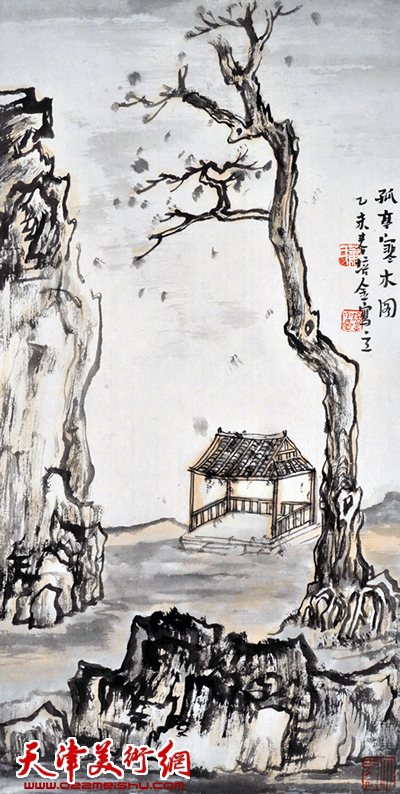 孤亭寒木图
乙未春培金写之
天津美術網
www.022meishu.com